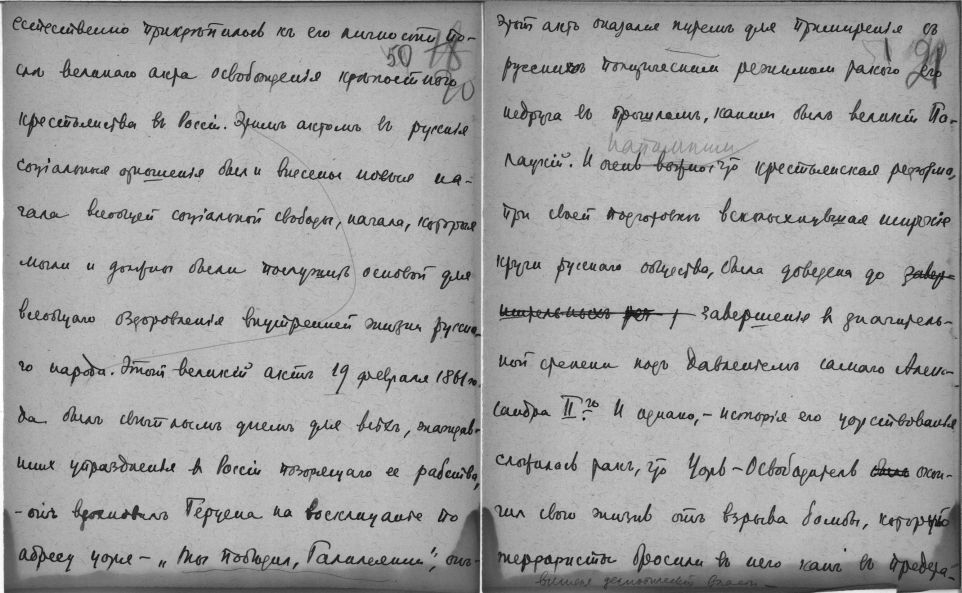 естественно прикрѣпилось къ его личности по-
50 18
20
слѣ великаго акта освобожденія крѣпостного
крестьянства въ Россіи. Этимъ актомъ въ русскія
соціальныя отношенія были внесены новыя на-
чала всеобщей соціальной свободы, начала, которыя
могли и должны были послужить основой для
всеобщаго оздоровленія внутренней жизни русска-
го народа. Этотъ великій актъ 19 февраля 1861 го-
да былъ свѣтлымъ днемъ для всѣхъ, жаждав-
шихъ упраздненія в Россіи позорящаго ее рабства,
- онъ вдохновилъ Герцена на восклицаніе по
адресу царя – „Ты побѣдил, Галилеянин“, онъ-
Этотъ актъ оказался путемъ для примиренія съ
21
русскимъ политическим режимом такого его
недруга въ прошломъ, каким былъ великій Па-
напомним
лацкій. И очень важно что крестьянская реформа,
при своей подготовкѣ всколыхнувшая широкіе
круги русскаго общества, была доведена до завер-
шительныхъ завершенія в значитель-
ной степени подъ давленіемъ самаго Алек-
сандра II го. И однако, – исторія его царствованія
сложилась такъ, что Царь-Освободитель былъ окон-
чил свою жизнь отъ взрыва бомбы, которую
террористы бросили въ него какъ въ предста-
вителя деспотической власти –